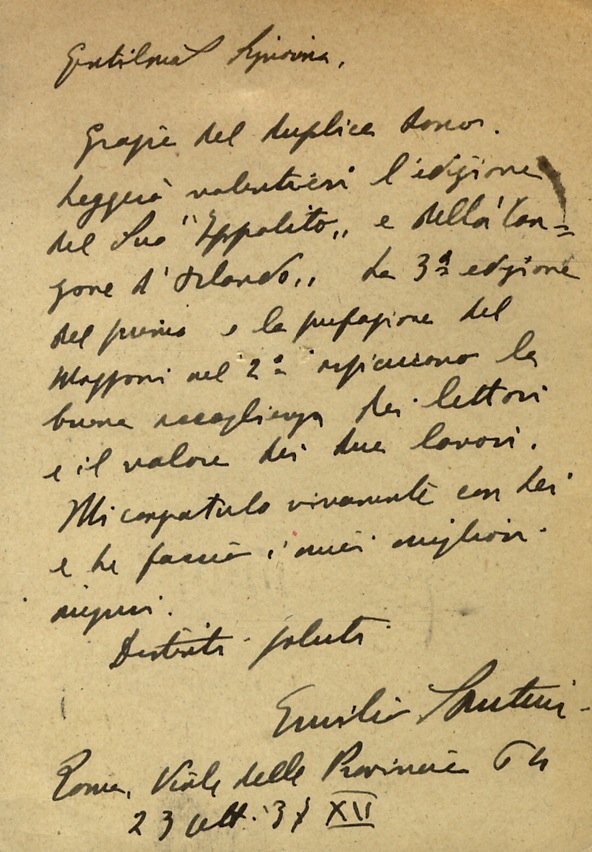 Gentilma Signorina,
Grazie del duplice dono.
Leggerò volentieri l'edizione
del Suo "Ippolito,, e della "Can=
zone d'Orlando,, La 3ª edizione
del primo e la prefazione del
Mazzoni nel 2º assicurano la
buona accoglienza dei lettori
e il valore dei due lavori.
Mi congratulo vivamente con Lei
e Le faccio i miei migliori
auguri.
Distinti saluti
Emilio Santini
Roma, Viale delle Provincie
23 sett. 37 XII